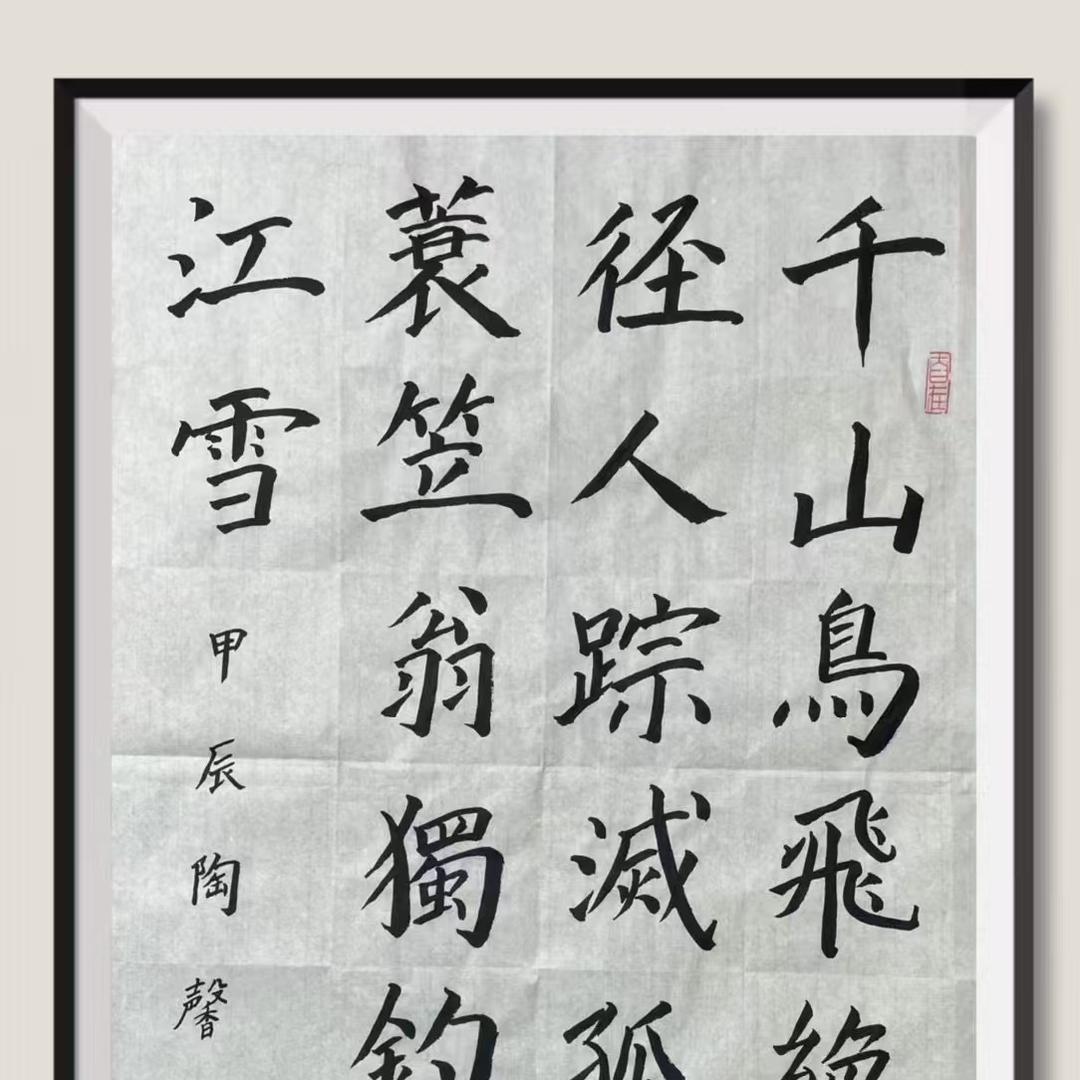 千山鳥飛絶
径人踪滅孤
蓑笠翁獨釣
江雪
甲辰陶馨